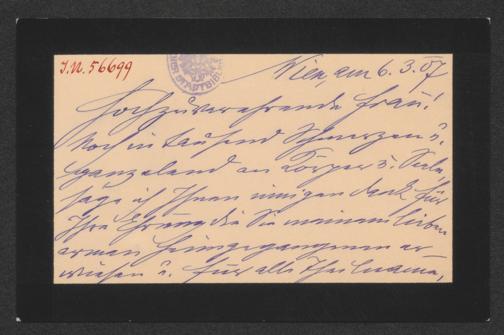 I.N. 56699
Wien, am 6.3.07
Hochzuverehrende Frau!
Noch in tausend Schmerzen u.
ganz elend an Körper u. Seele,
sage ich Ihnen innigen Dank für
Ihre Ehrung die Sie meinem lieben
armen Heimgegangenen er-
wiesen u. für alle Theilnahme,